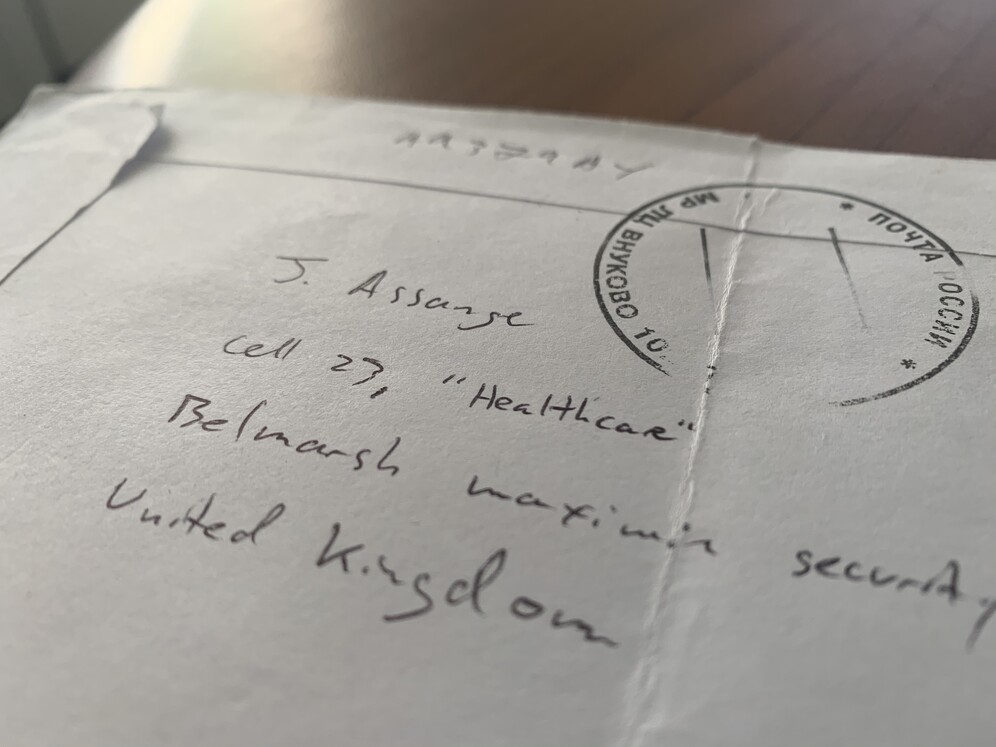 A9379AY
J. Assange
Cell 23, "Healthcare"
Belmarsh maximum security
United Kingdom
* ПОЧТА РОССИИ *
МР ЛЦ ВНУКОВО 10